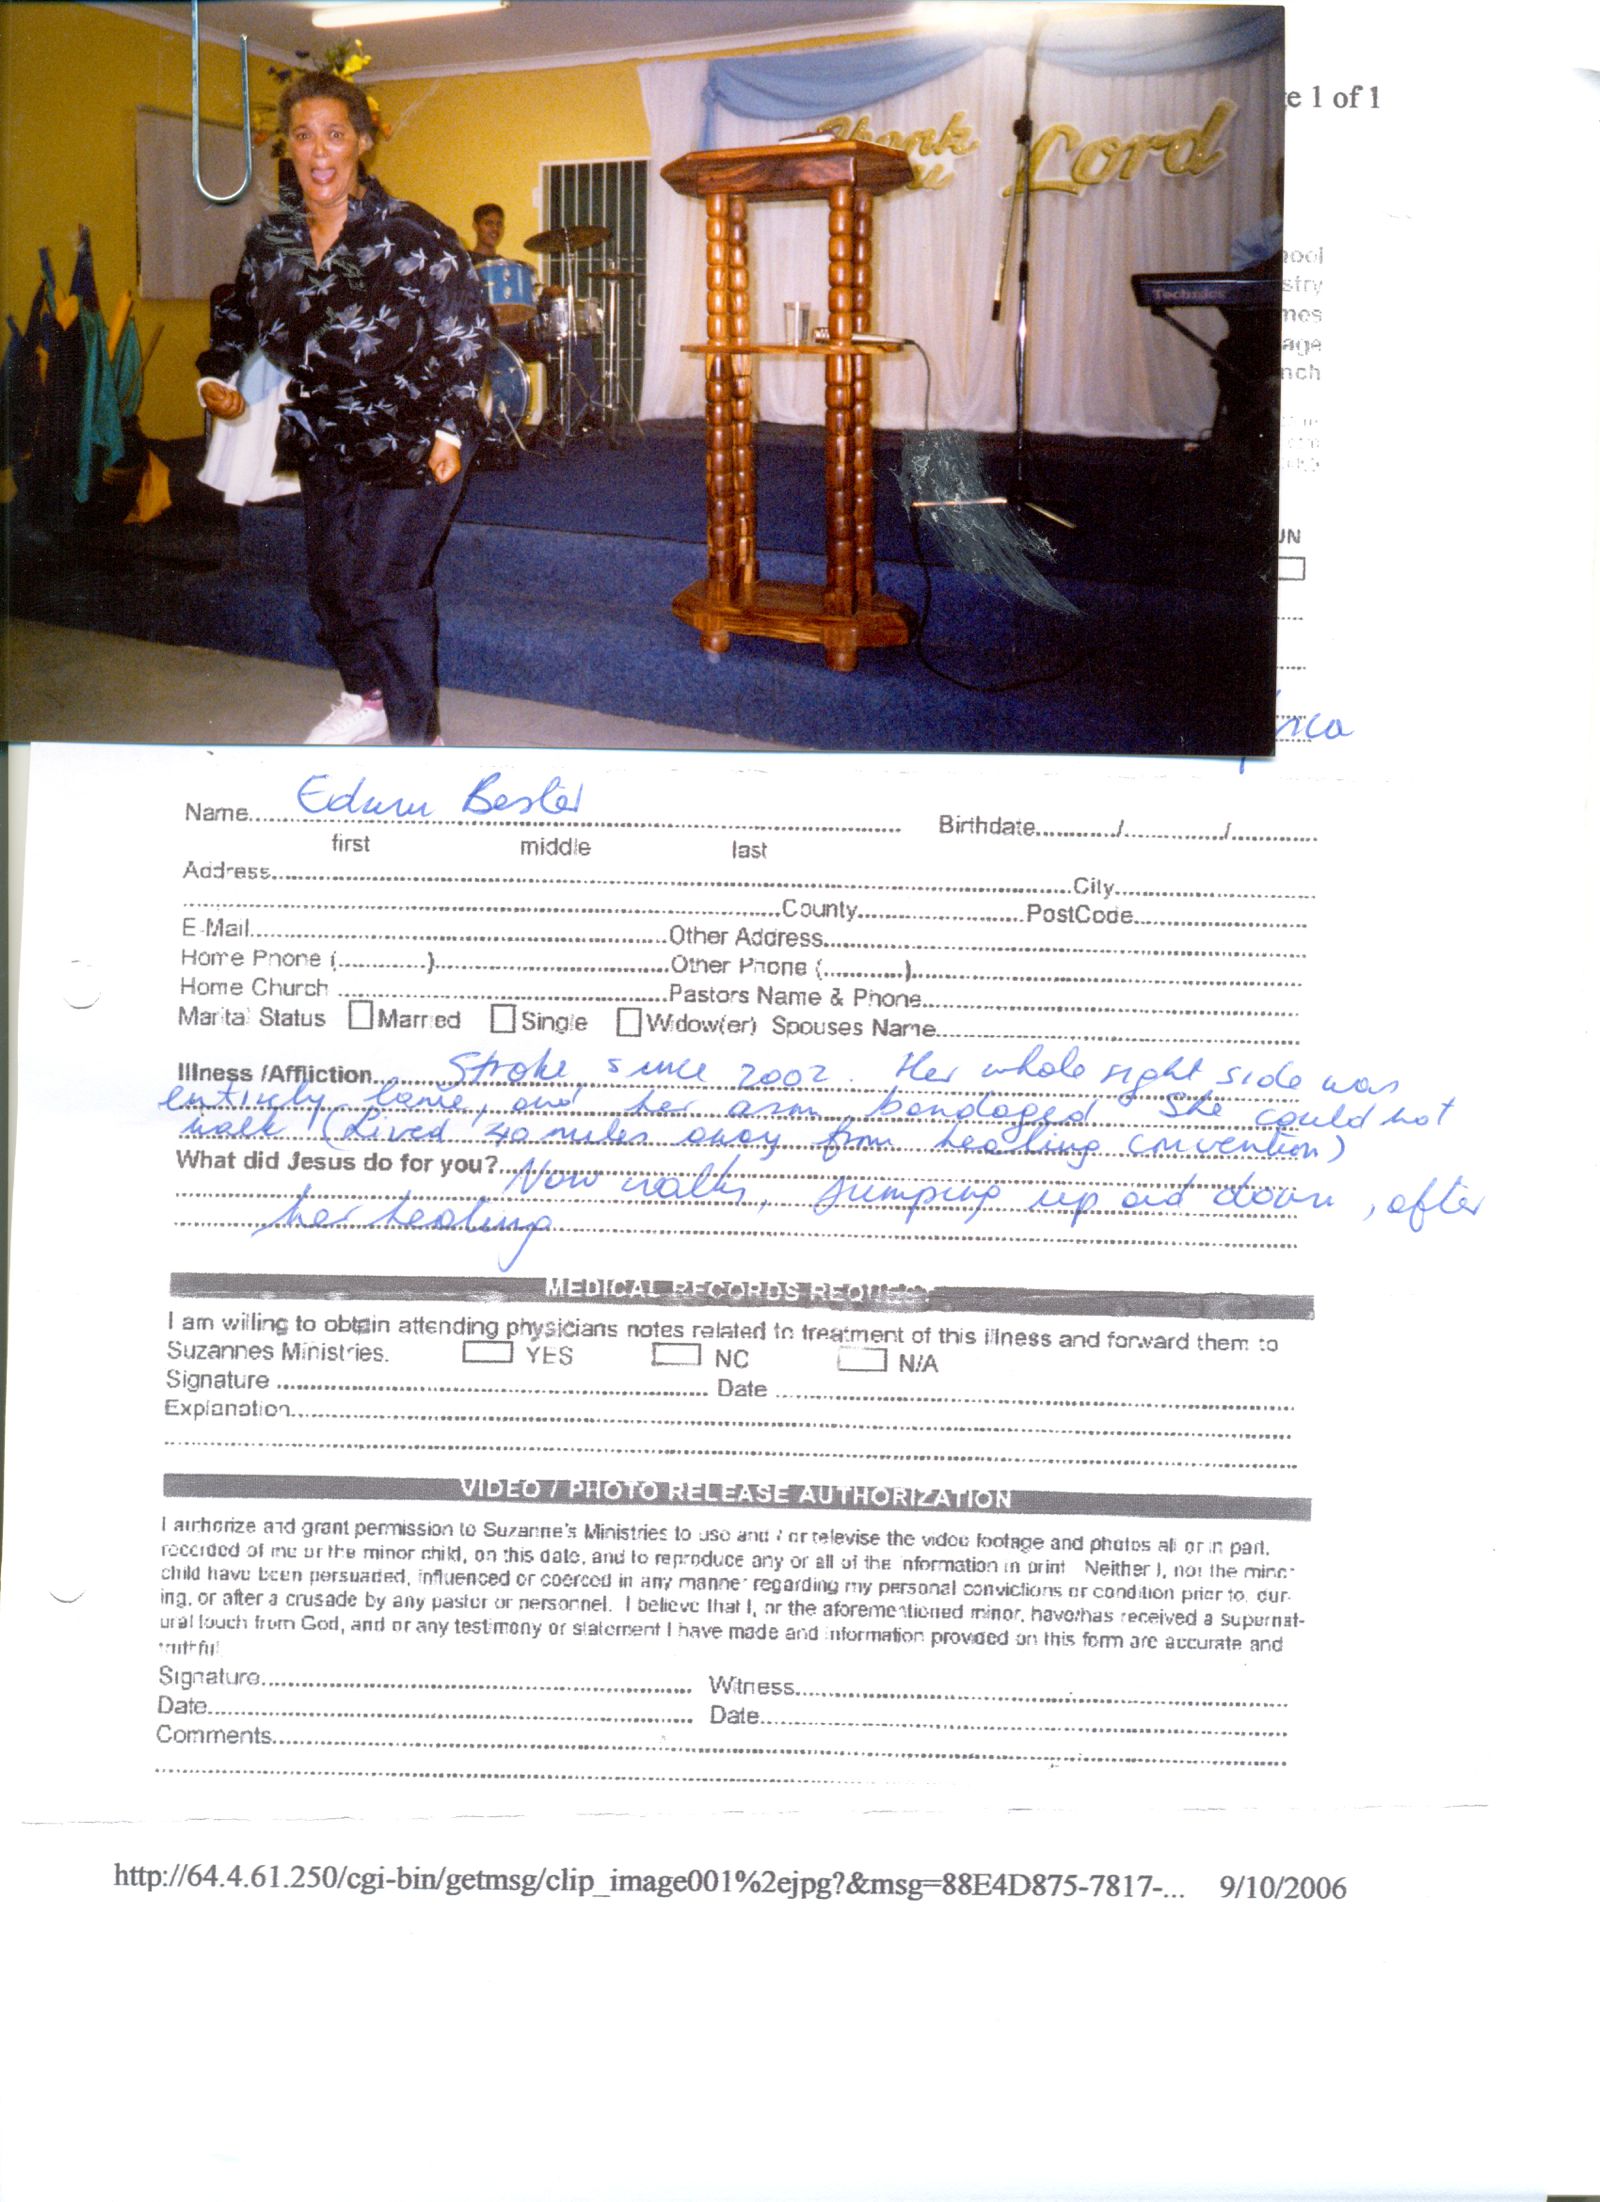 Thank
Lord
Technics
1 of 1
UN
Name
Besler
Birthdate / /
first middle last
Address City
County PostCode
E-Mail Other Address
Home Phone ( ) Other Phone ( )
Home Church Pastors Name & Phone
Marital Status Married Single Widow(er) Spouses Name
Illness /Affliction Stroke since 2002. Her whole right side was
entirely lame, and her arm bandaged. She could not
walk (Lived 40 miles away from healing convention)
What did Jesus do for you? Now walks, jumping up and down, after
her healing
MEDICAL RECORDS REQUEST
I am willing to obtain attending physicians notes related to treatment of this illness and forward them to
Suzannes Ministries. YES NO N/A
Signature Date
Explanation
VIDEO / PHOTO RELEASE AUTHORIZATION
I authorize and grant permission to Suzanne's Ministries to use and / or televise the video footage and photos all or in part,
recorded of me or the minor child, on this date, and to reproduce any or all of the information in print. Neither I, nor the minor
child have been persuaded, influenced or coerced in any manner regarding my personal convictions or condition prior to, dur-
ing, or after a crusade by any pastor or personnel. I believe that I, or the aforementioned minor, have/has received a supernat-
ural touch from God, and or any testimony or statement I have made and information provided on this form are accurate and
truthful
Signature Witness
Date Date
Comments
http://64.4.61.250/cgi-bin/getmsg/clip_image001%2ejpg?&msg=88E4D875-7817-... 9/10/2006